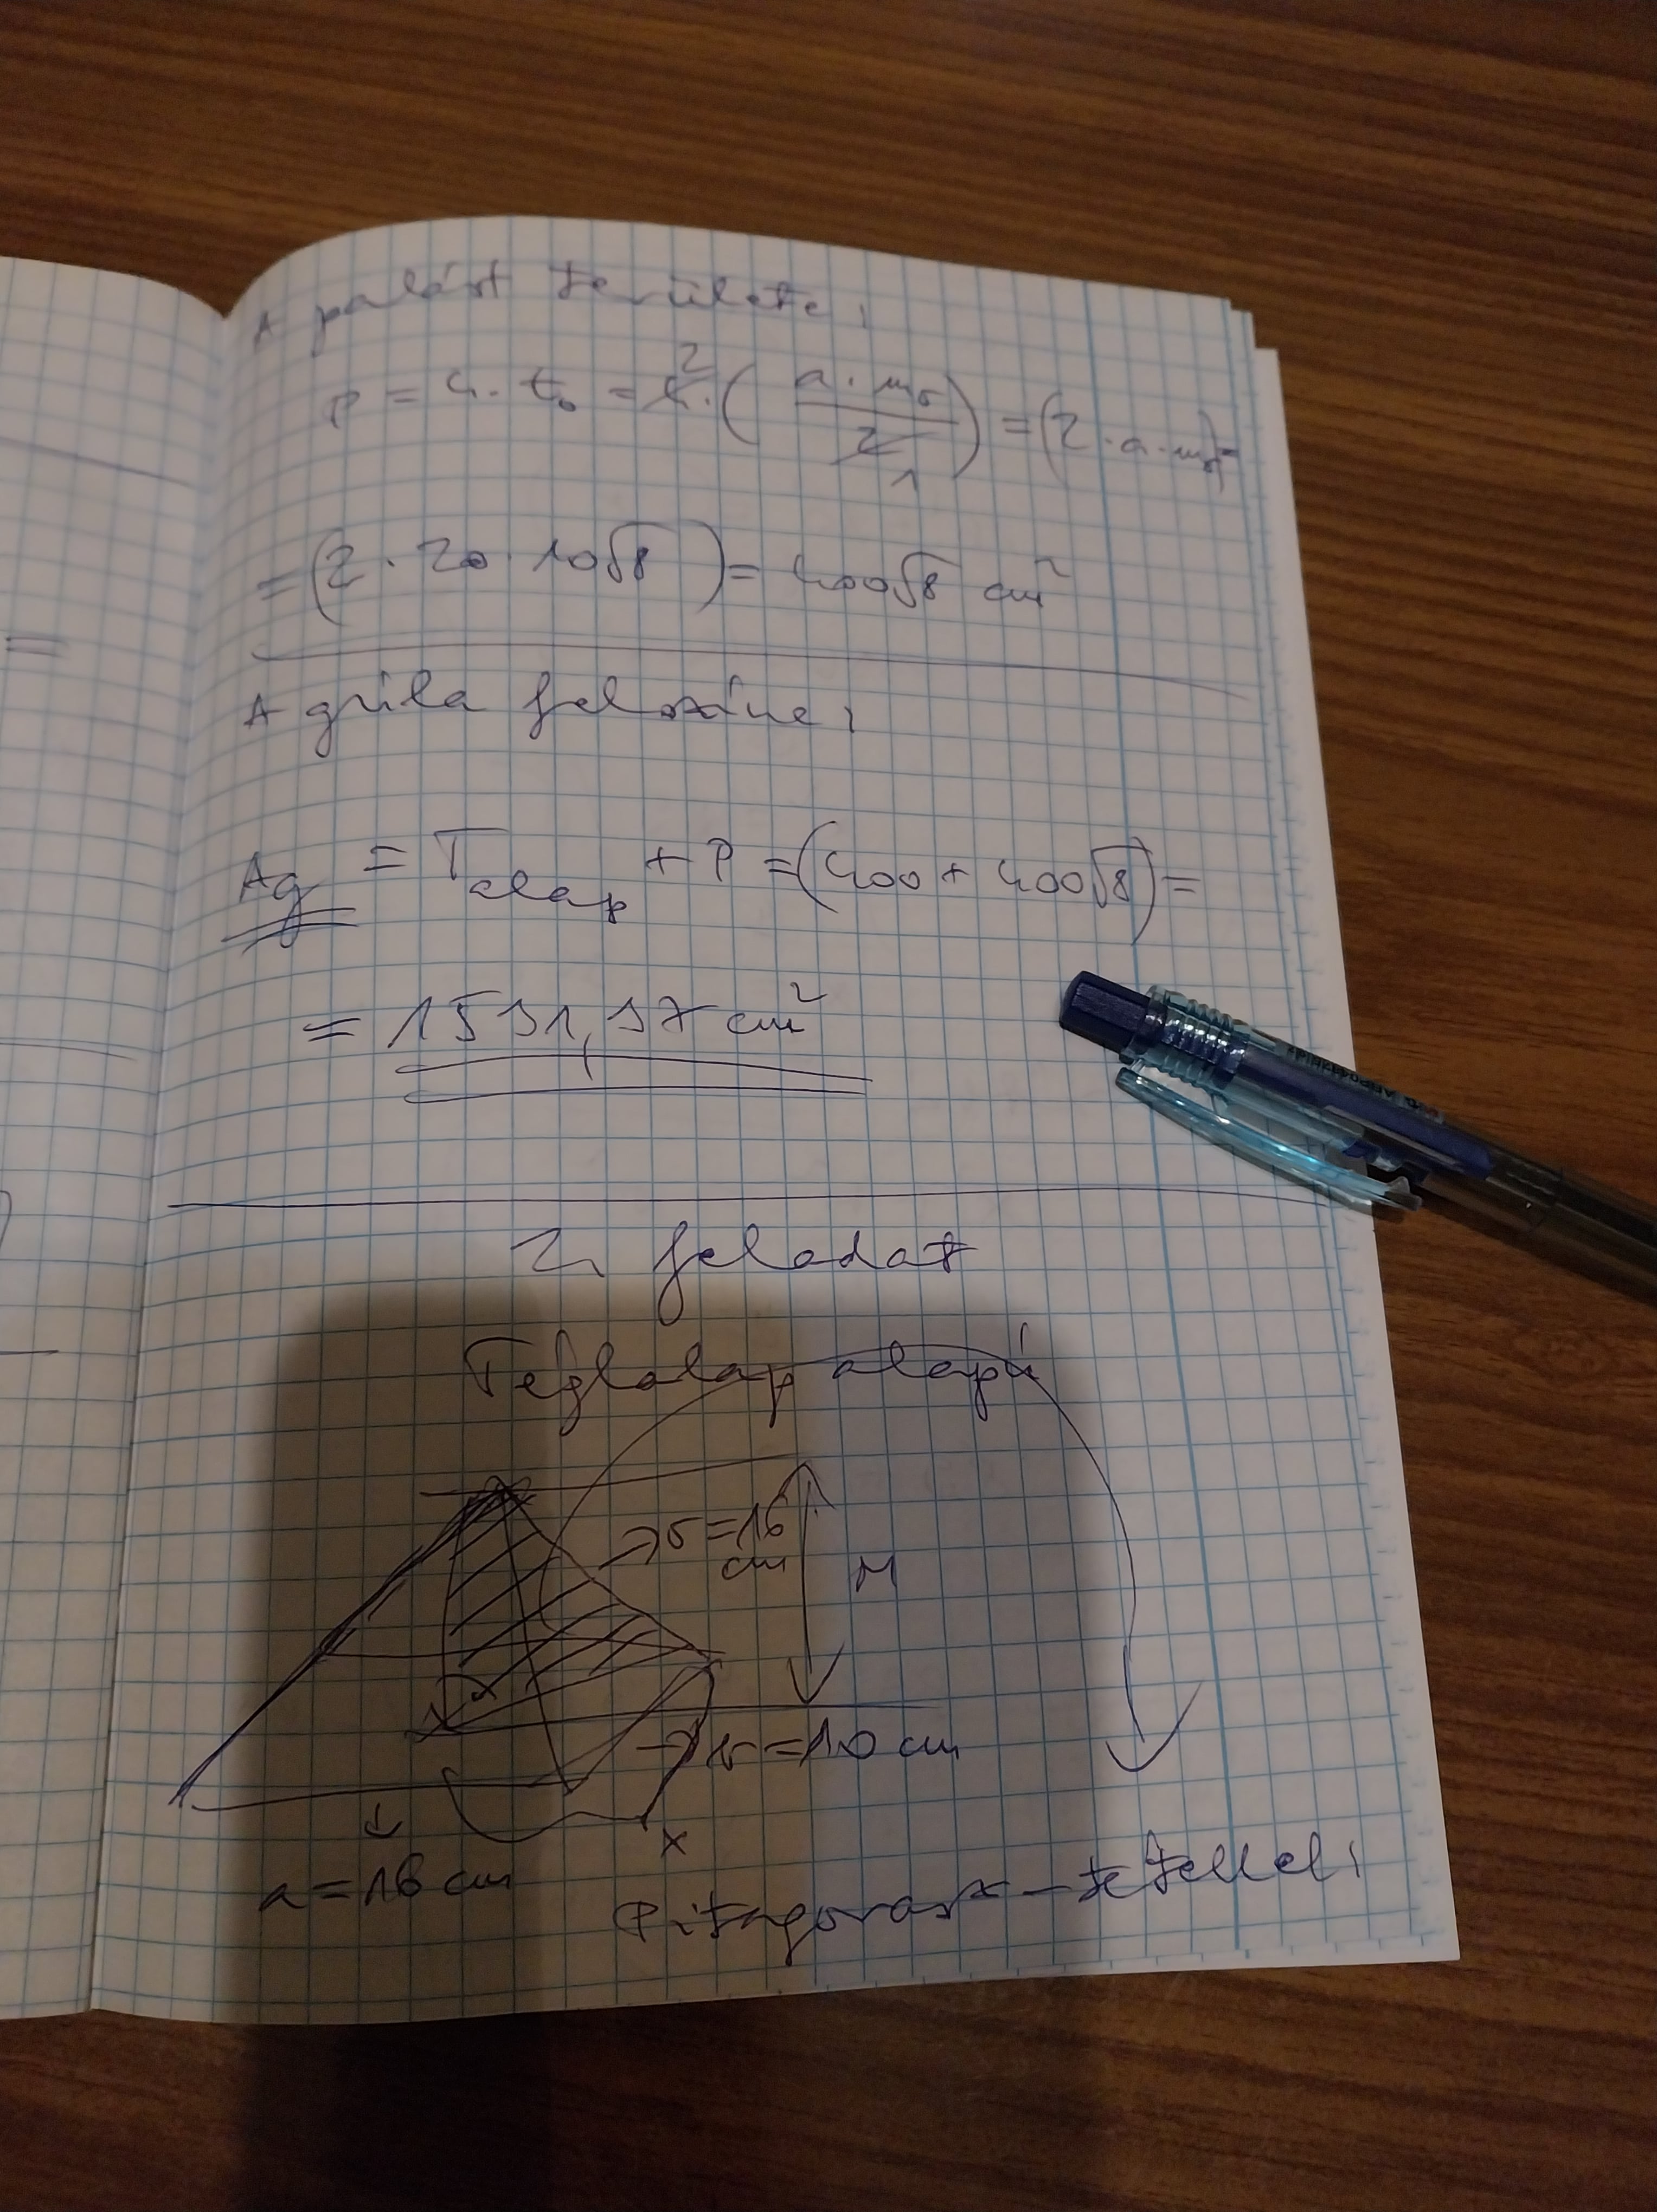 A palást területe:
P = 4 · t₀ = 4 · 2 ( a · m₀ / 2 1 ) = (2 · a · m₀) =
= (2 · 20 · 10√8 ) = 400√8 cm²
A gúla felszíne:
Ag = Talap + P = (400 + 400√8) =
= 1531,37 cm²
2, feladat
Téglalap alapú
→ b = 16 cm
M
α
→ b = 10 cm
x
a = 16 cm
Pitagorasz-tétellel: